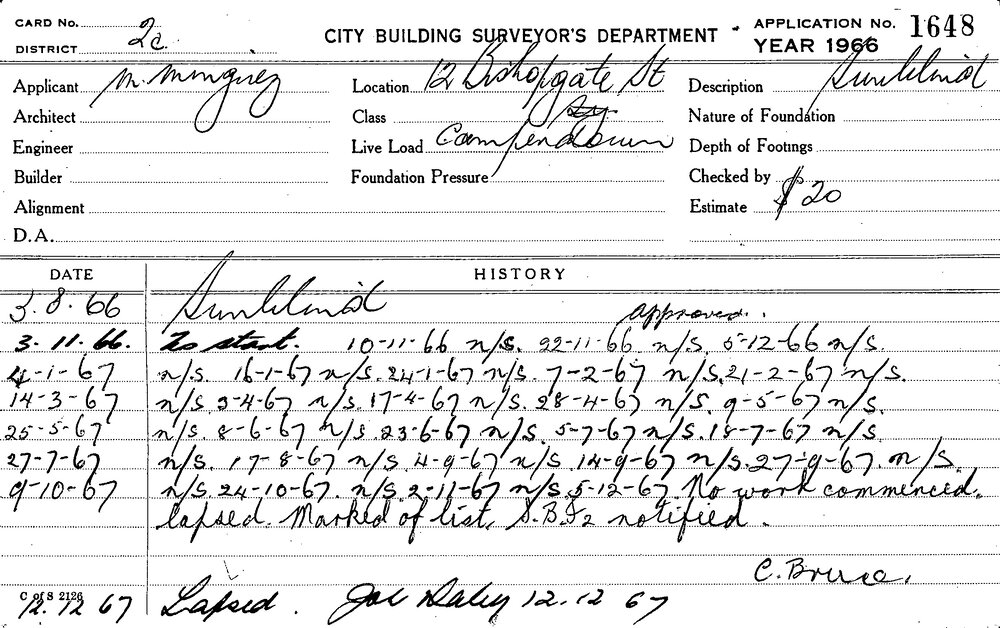 CARD No. 2c
DISTRICT
CITY BUILDING SURVEYOR'S DEPARTMENT
APPLICATION No. 1648
YEAR 1966
Applicant M. Minguez
Location 12 Bishopgate St
Description Sunblind
Architect
Class
Nature of Foundation
Engineer
Live Load Camperdown
Depth of Footings
Builder
Foundation Pressure
Checked by
Alignment
Estimate $20
D.A.
DATE HISTORY
3.8.66 Sunblind approved.
3.11.66. To start. 10-11-66 n/s. 22-11-66 n/s. 5-12-66 n/s.
4-1-67 n/s. 16-1-67 n/s. 24-1-67 n/s. 7-2-67 n/s. 21-2-67 n/s.
14-3-67 n/s. 3-4-67 n/s. 17-4-67 n/s. 28-4-67 n/s. 9-5-67 n/s.
25-5-67 n/s. 8-6-67 n/s. 23-6-67 n/s. 5-7-67 n/s. 18-7-67 n/s.
27-7-67 n/s. 17-8-67 n/s. 4-9-67 n/s. 14-9-67 n/s. 27-9-67. n/s.
9-10-67 n/s. 24-10-67. n/s. 2-11-67 n/s. 5-12-67. No work commenced.
lapsed. Marked of list. notified.
C. Bruce.
C of S 2126
12.12 67 Lapsed. Daley 12.12 67